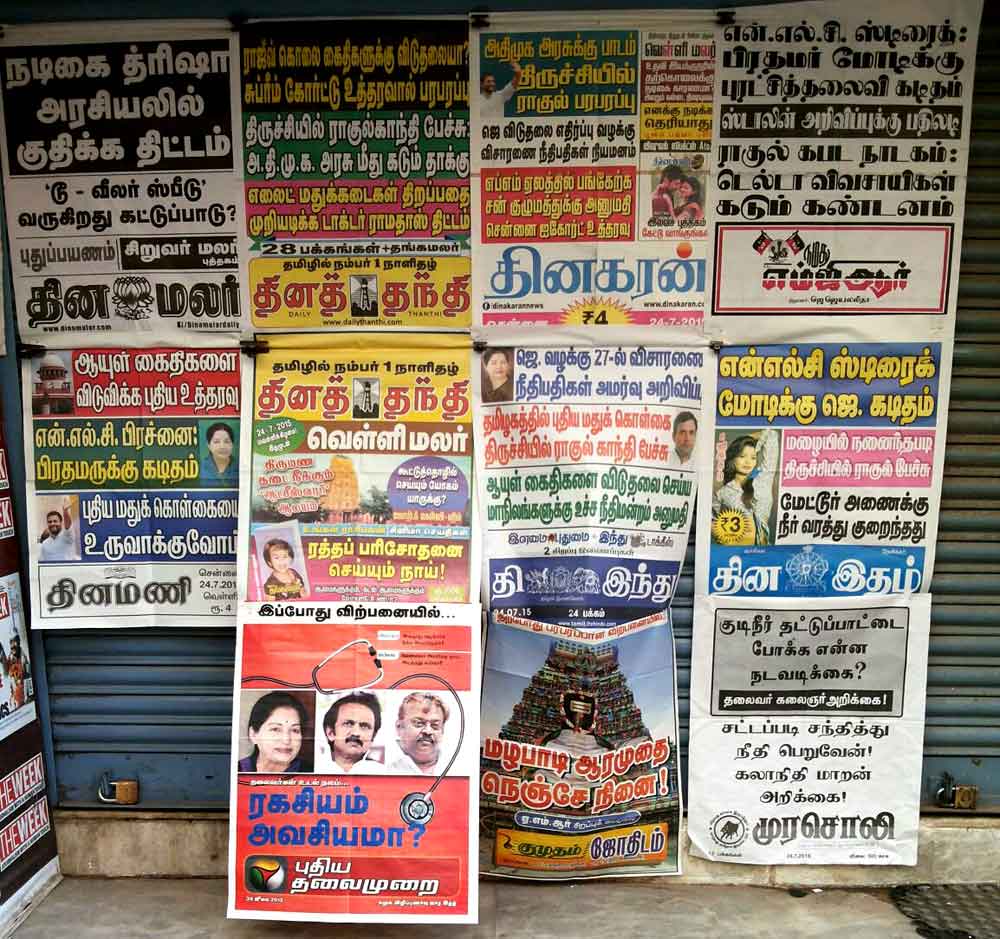 நடிகை த்ரிஷா
அரசியலில்
குதிக்க திட்டம்
'டூ - வீலர் ஸ்பீடு'
வருகிறது கட்டுப்பாடு?
புதுப்பயணம் சிறுவர் மலர்
புத்தகம்
தின மலர்
www.dinamalar.com
ராஜீவ் கொலை கைதிகளுக்கு விடுதலையா?
சுப்ரீம் கோர்ட்டு உத்தரவால் பரபரப்பு
திருச்சியில் ராகுல்காந்தி பேச்சு:
அ.தி.மு.க. அரசு மீது கடும் தாக்கு
எலைட் மதுக்கடைகள் திறப்பதை
முறியடிக்க டாக்டர் ராமதாஸ் திட்டம்
28 பக்கங்கள்+தங்கமலர்
தமிழில் நம்பர் 1 நாளிதழ்
தினத் தந்தி
DAILY THANTHI
www.dailythanthi.com
அதிமுக அரசுக்கு பாடம்
திருச்சியில்
ராகுல் பரபரப்பு
ஜெ விடுதலை எதிர்ப்பு வழக்கு
விசாரணை நீதிபதிகள் நியமனம்
எப்எம் ஏலத்தில் பங்கேற்க
சன் குழுமத்துக்கு அனுமதி
சென்னை ஐகோர்ட் உத்தரவு
வெள்ளி மலர்
எனக்கு நடிக்க
தெரியாது
இலவச புத்தகம்
கேட்டு வாங்குங்கள்
தினகரன்
/dinakarannews
www.dinakaran.c
சென்னை ₹4 24-7-201
என்.எல்.சி. ஸ்டிரைக்:
பிரதமர் மோடிக்கு
புரட்சித்தலைவி கடிதம்
ஸ்டாலின் அறிவிப்புக்கு பதிலடி
ராகுல் கபட நாடகம்:
டெல்டா விவசாயிகள்
கடும் கண்டனம்
நமது
எம்ஜிஆர்
நிறுவனர்: ஜெ ஜெயலலிதா
ஆயுள் கைதிகளை
விடுவிக்க புதிய உத்தரவு
என்.எல்.சி. பிரச்னை:
பிரதமருக்கு கடிதம்
புதிய மதுக் கொள்கையை
உருவாக்குவோம்
தினமணி
சென்னை
24.7.201
வெள்ளி
ரூ. 4
தமிழில் நம்பர் 1 நாளிதழ்
தினத் தந்தி
24-7-2015
வெள்ளி மலர்
திருமண
தடை நீக்கும்
கூட்டுத்தொழில்
செய்யும் யோகம்
யாருக்கு?
ரத்தப் பரிசோதனை
செய்யும் நாய்!
ஜெ. வழக்கு 27-ல் விசாரணை
நீதிபதிகள் அமர்வு அறிவிப்
தமிழகத்தில் புதிய மதுக் கொள்கை
திருச்சியில் ராகுல் காந்தி பேச்சு
ஆயுள் கைதிகளை விடுதலை செய்ய
மாநிலங்களுக்கு உச்ச நீதிமன்றம் அனுமதி
2 சிறப்பு இணைப்புகள்
தி இந்து
24.07.15 24 பக்கம்
www.tamil.thehindu.com
என்எல்சி ஸ்டிரைக்
மோடிக்கு ஜெ. கடிதம்
மழையில் நனைந்தபடி
திருச்சியில் ராகுல் பேச்சு
மேட்டூர் அணைக்கு
நீர் வரத்து குறைந்தது
₹3
தின இதழ்
இப்போது விற்பனையில்...
தலைவர்கள் உடல் நலம்...
ரகசியம்
அவசியமா?
புதிய
தலைமுறை
மழபாடி ஆரமுதை
நெஞ்சே நினை!
ஏ.எம்.ஆர்
குமுதம் ஜோதிடம்
குடிநீர் தட்டுப்பாட்டை
போக்க என்ன
நடவடிக்கை?
தலைவர் கலைஞர்அறிக்கை!
சட்டப்படி சந்தித்து
நீதி பெறுவேன்!
கலாநிதி மாறன்
அறிக்கை!
முரசொலி
24.7.2015
THE WEEK
THE WEEK